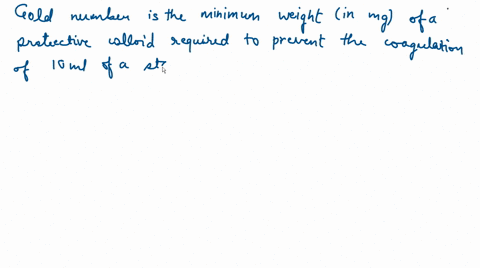 Gold number is the minimum weight (in mg) of a
protective colloid required to prevent the coagulation
of 10 ml of a st